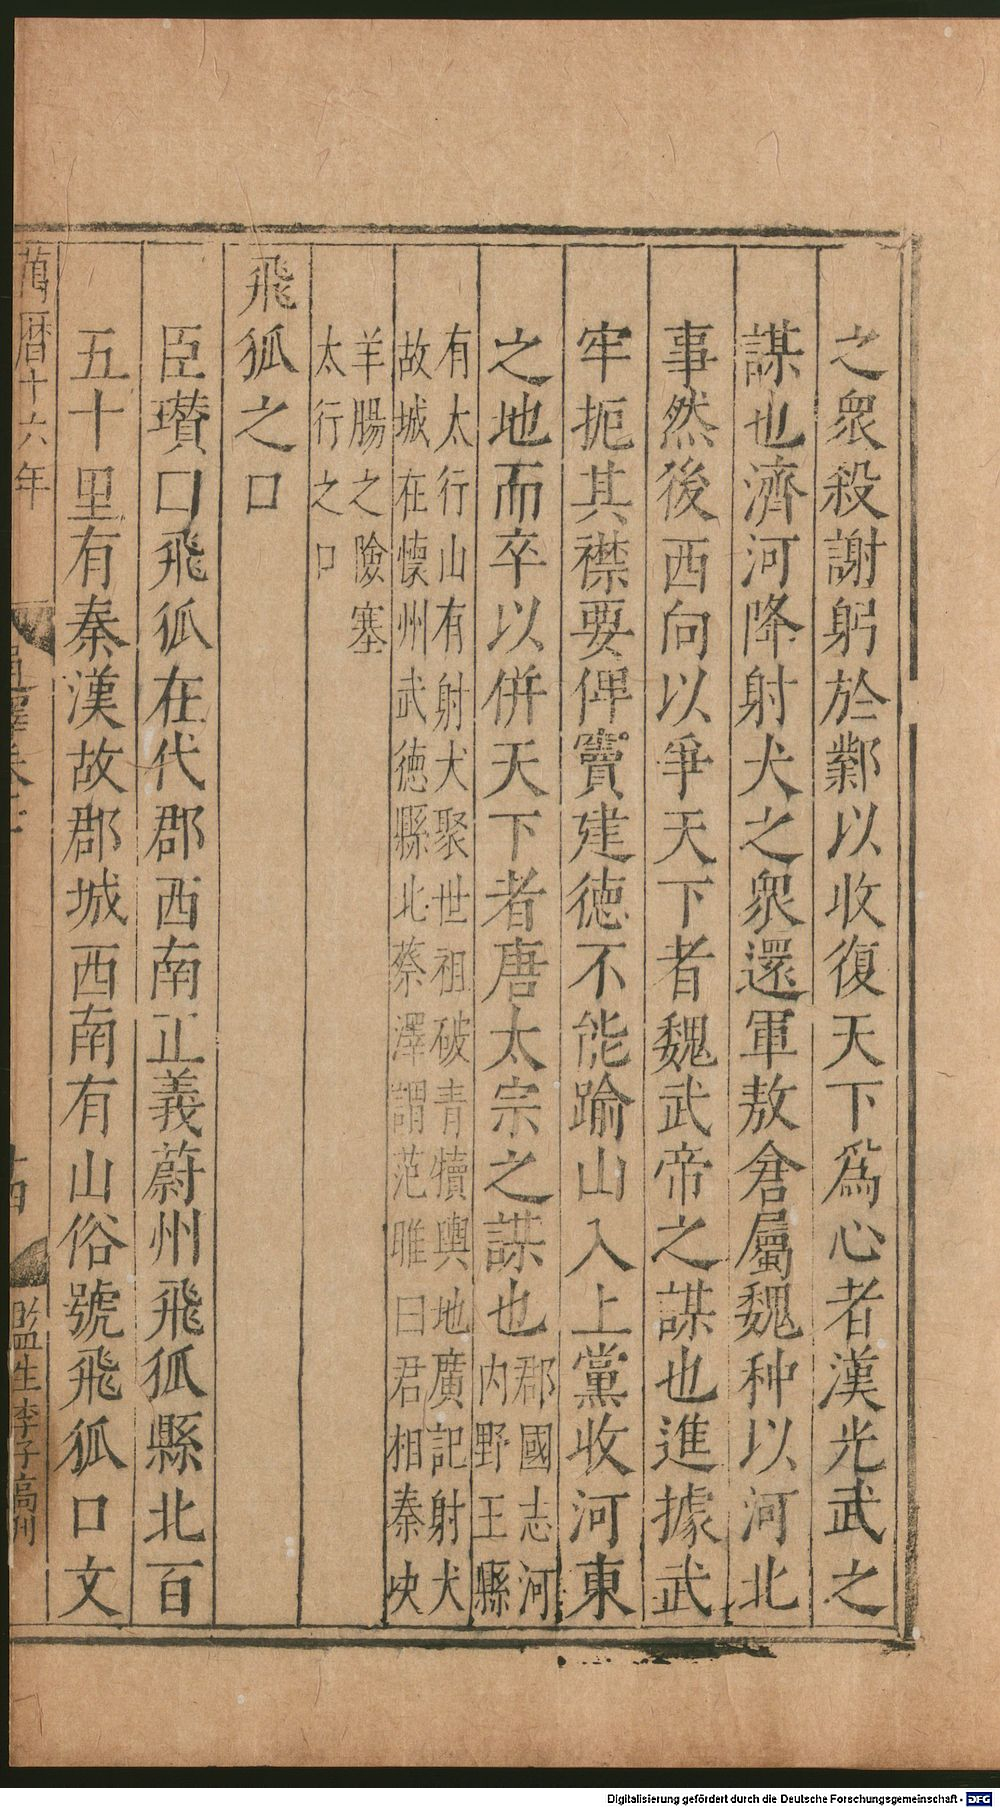 之衆殺謝躬於鄴以收復天下爲心者漢光武之
謀也濟河降射犬之衆還軍敖倉屬魏种以河北
事然後西向以爭天下者魏武帝之謀也進據武
牢扼其襟要俾竇建德不能踰山入上黨收河東
之地而卒以併天下者唐太宗之謀也郡國志河
内野王縣
有太行山有射犬聚世祖破青犢輿地廣記射犬
故城在懷州武德縣北蔡澤謂范雎曰君相秦决
羊腸之險塞
太行之口
飛狐之口
臣瓉曰飛狐在代郡西南正義蔚州飛狐縣北百
五十里有秦漢故郡城西南有山俗號飛狐口文
萬曆十六年
通釋卷十
十四
監生李子高刊
Digitalisierung gefördert durch die Deutsche Forschungsgemeinschaft - DFG